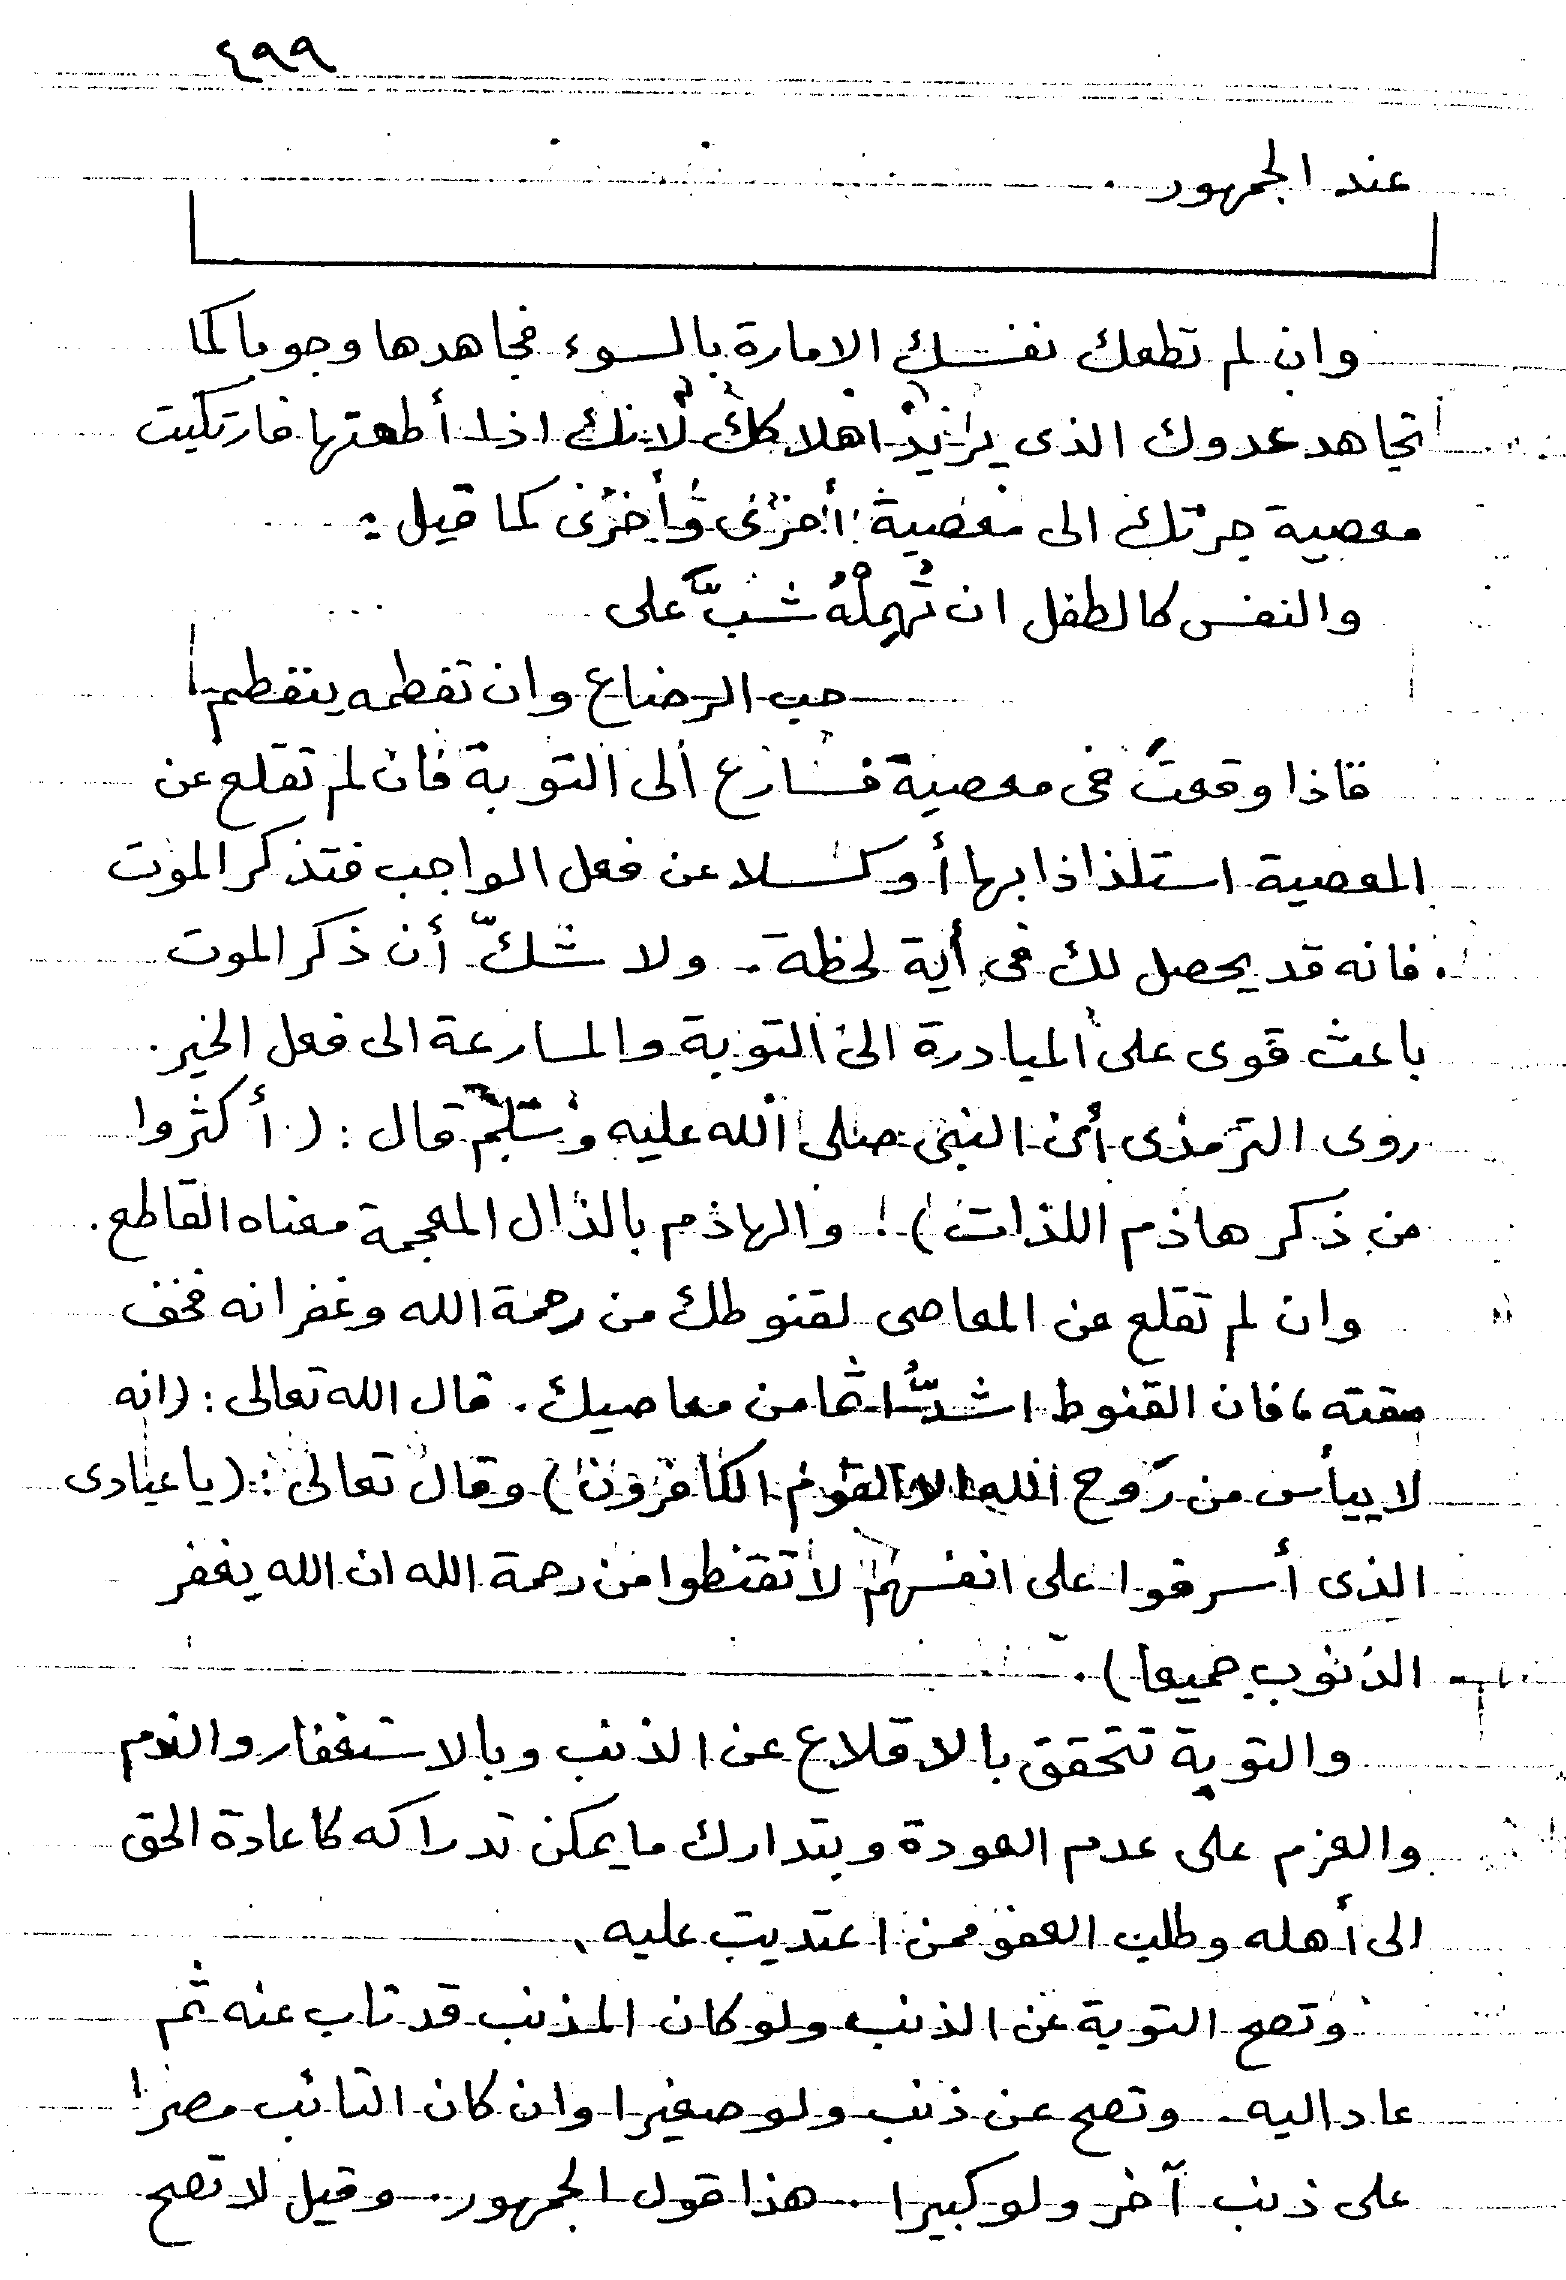 ٤٩٩
عند الجمهور .
وان لم تطعك نفسك الامارة بالسوء فجاهدها وجوبا كما
تجاهد عدوك الذى يريد اهلاكك لانك اذا أطعتها فارتكبت
معصية جرتك الى معصية أخرى وأخرى كما قيل :
والنفس كالطفل ان تُهمِلْهُ شبَّ على
حب الرضاع وان تفطمه ينفطم
فاذا وقعت فى معصية فسارع الى التوبة فان لم تقلع عن
المعصية استلذاذا بها أو كسلا عن فعل الواجب فتذكر الموت
فانه قد يحصل لك فى أية لحظة . ولا شكّ أن ذكر الموت
باعث قوى على المبادرة الى التوبة والمسارعة الى فعل الخير .
روى الترمذى أن النبى صلى الله عليه وسلم قال : ( أكثروا
من ذكر هاذم اللذات ) ! والهاذم بالذال المعجمة معناه القاطع .
وان لم تقلع عن المعاصى لقنوطك من رحمة الله وغفرانه فخف
مقته ، فان القنوط اشدُّ اثما من معاصيك . قال الله تعالى : (انه
لا ييأس من رَوح الله الا القوم الكافرون) وقال تعالى : (يا عبادى
الذى أسرفوا على انفسهم لا تقنطوا من رحمة الله ان الله يغفر
الذنوب جميعا) .
والتوبة تتحقق بالاقلاع عن الذنب وبالاستغفار والندم
والعزم على عدم العودة وبتدارك ما يمكن تدراكه كاعادة الحق
الى أهله وطلب العفو ممن اعتديت عليه .
وتصح التوبة عن الذنب ولو كان المذنب قد تاب عنه ثم
عاد اليه . وتصح عن ذنب ولو صغيرا وان كان التائب مصرا
على ذنب آخر ولو كبيرا . هذا قول الجمهور . وقيل لا تصح